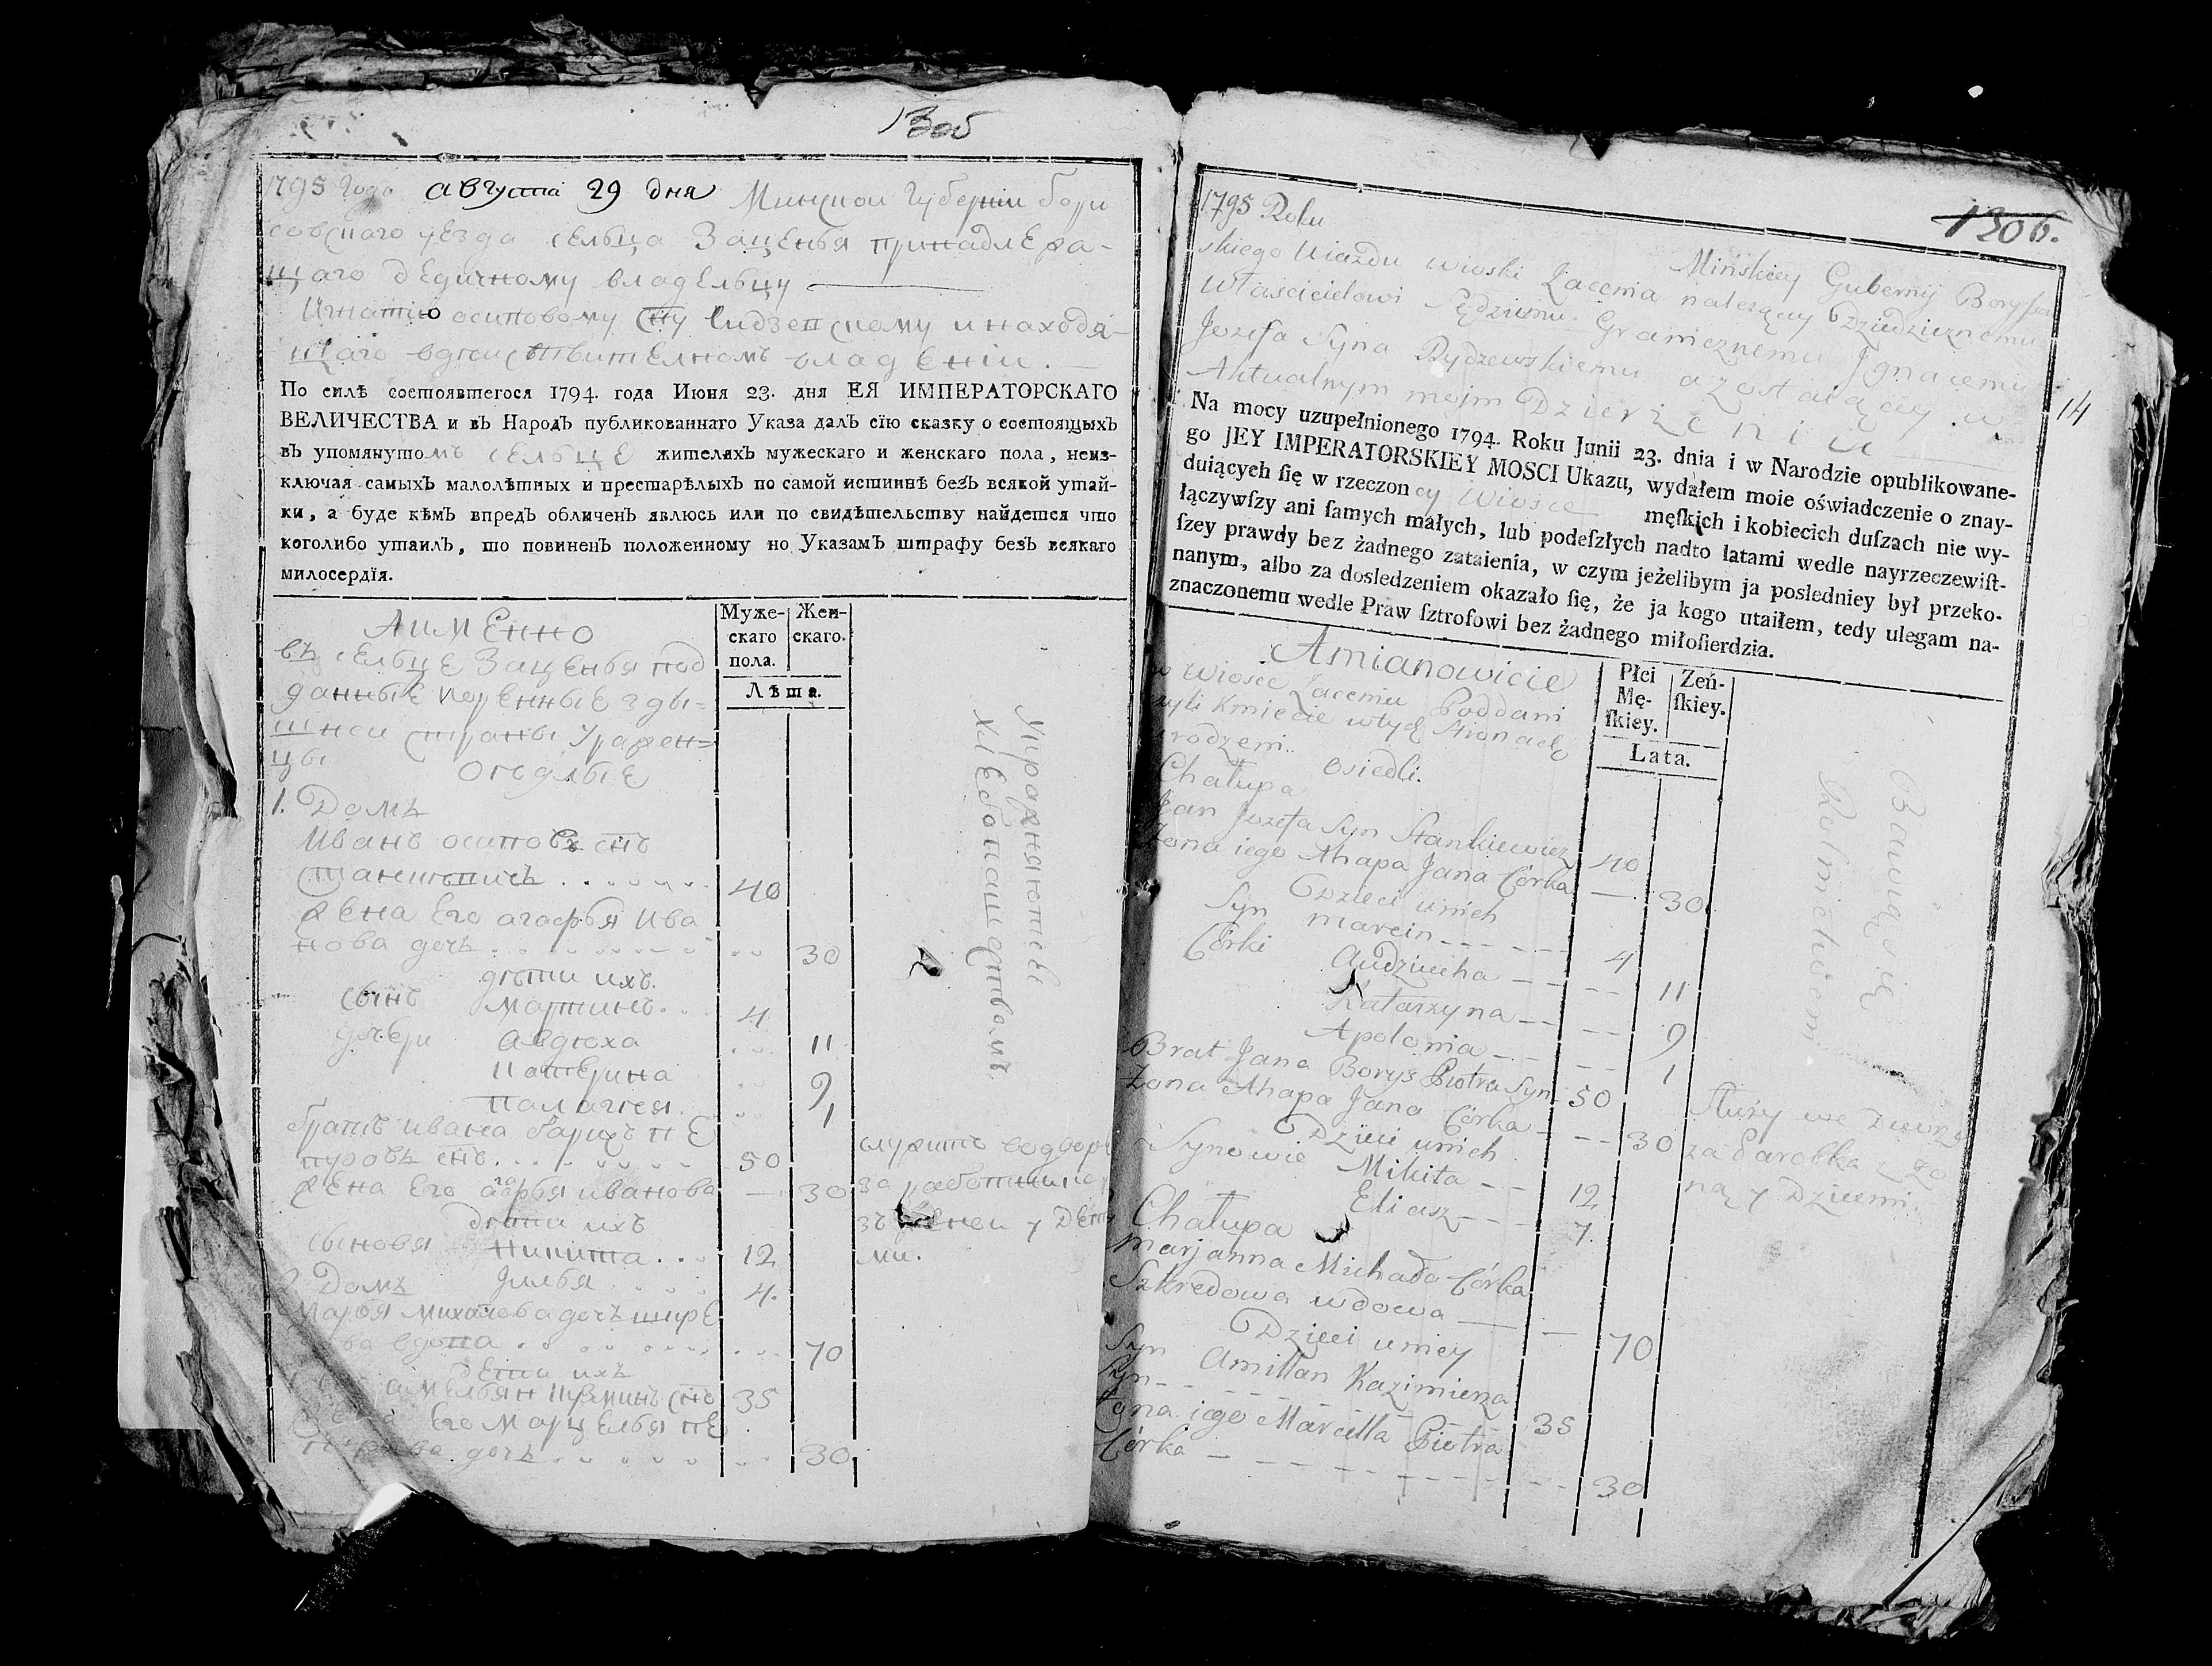 13об
1795 года августа 29 дня Минской губернии бори
совского уезда сельца Заценья принадлежа-
щаго дедичному владельцу
Игнатию осипову сну Ридзевскому и находя-
щаго вдействителномъ владении.
По силѣ состоявшегося 1794. года Июня 23. дня ЕЯ ИМПЕРАТОРСКАГО
ВЕЛИЧЕСТВА и въ Народъ публикованнаго Указа далъ сїю сказку о состоящыхъ
въ упомянутомъ сельце жителяхъ мужескаго и женскаго пола, неиз-
ключая самыхъ малолѣтныхъ и престарѣлыхъ по самой истиннѣ безъ всякой утай-
ки, а буде кѣмъ впредъ обличенъ явлюсь или по свидѣтельству найдется что
коголибо утаилъ, то повиненъ положенному по Указамъ штрафу безъ всякаго
милосердїя.
Аименно
Муже-
скаго
пола.
Жен-
скаго.
Лѣта.
въ сельце Заценья под
данные коренные зды-
шней страны уражен-
цы оседлые
Упражняются
хлебопашествамъ
1. Домъ
Иванъ осиповъ снъ
Станкевичь 40
жена его агафья Ива
нова дочь 30
дети ихъ
сынъ мартинъ 4
дочери Авдюха 11
Катерина 9
Палагея 1
братъ ивана барисъ пе
тровъ снъ 50
жена его агафья иванова — 30
служитъ водворе
за работника
зъ женои у дет
ми.
дети ихъ
сыновя Никита 12
Илья 4.
2 Домъ
Марья михалова дочь шкре
дова вдова 70
дети ихъ
амельян Кузминъ снъ 35
жена Его Марцелья пе
трова дочь 30
1306.
14
1795 Roku Mińskiey Gubernij Borysow
skiego Uiazdu wioski Zacenia należącey Dziedzicznemu
Właścicielowi Sędziemu Granicznemu Jgnacemu
Jozefa Syna Rydzewskiemu a zostaiącey w
Aktualnym mojm Dzierżeniu
Na mocy uzupełnionego 1794. Roku Junii 23. dnia i w Narodzie opublikowane-
go JEY IMPERATORSKIEY MOSCI Ukazu, wydałem moie oświadczenie o znay-
duiących ſię w rzeczoney Wiosce męſkich i kobiecich duſzach nie wy-
łączywſzy ani ſamych małych, lub podeſzłych nadto latami wedle nayrzeczewiſt-
ſzey prawdy bez żadnego zataienia, w czym jeżelibym ja posledniey był przeko-
nanym, albo za dosledzeniem okazało ſię, że ja kogo utaiłem, tedy ulegam na-
znaczonemu wedle Praw ſztrofowi bez żadnego miłoſierdzia.
Amianowicie
Płci
Mę-
ſkiey.
Zeń-
ſkiey.
Lata.
w Wiosce Zaceniu Poddani
czyli Kmiecie wtych Stronach
urodzeni
osiedli.
Bawią się
Rolnictwem
Chałupa
Jan Jozefa Syn Stankiewicz 40
Zona iego Ahapa Jana Córka — 30
Dzieci unich
Syn marcin 4
Córki Audziucha 11
Katarzyna 9
Apolonia 1
Brat Jana Borys Piotra Syn 50
Zona Ahapa Jana Córka 30
Służy we Dworze
za Parobka z Żo
ną y Dziećmi.
Dzieci unich
Synowie Mikita 12
Eliasz 7.
Chałupa
Marjanna Michała Córka
Szkredowa wdowa — 70
Dzieci uniey
Syn Amillan Kazimierza
Syn 35
Zona iego Marcella Piotra
Córka 30